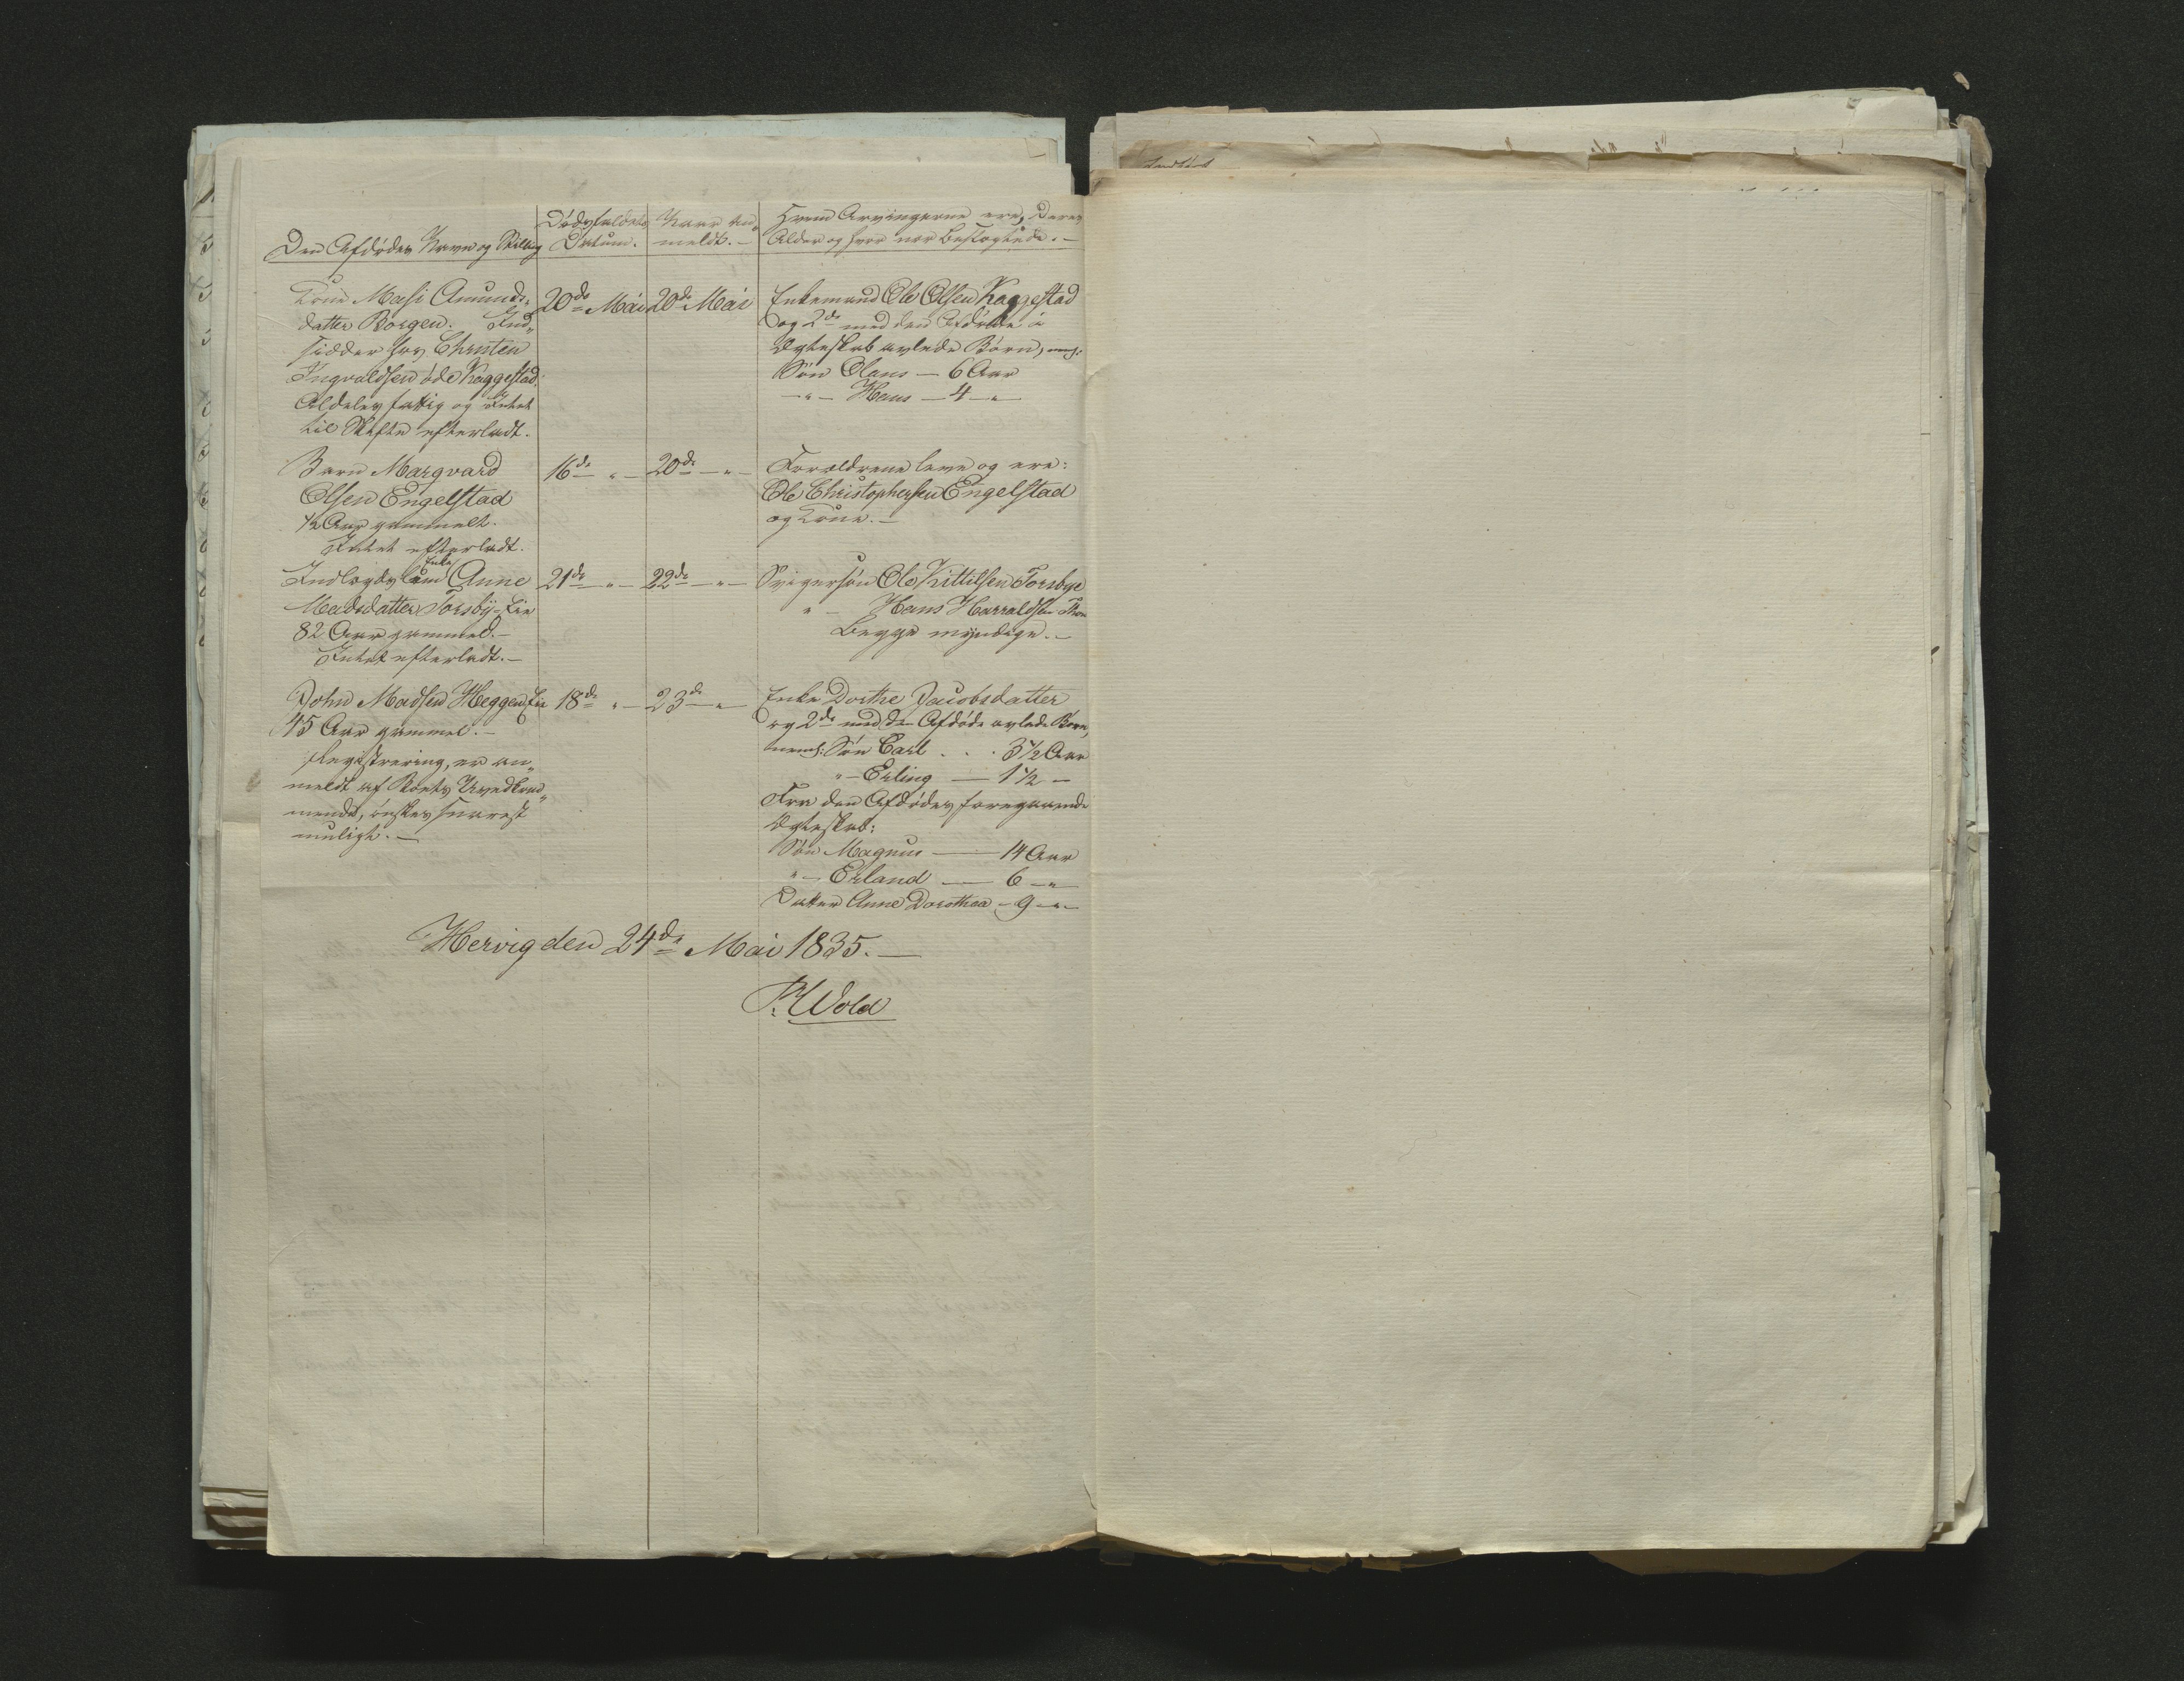 Den Afdødes Navn og Stilling
Dødsfaldets
Datum.
Naar an-
meldt. —
Hvem Arvingerne ere, Deres
Alder og hvor nær beslægtede. —
Kone Masi Amunds-
datter Borgen. Ind-
sidder hos Christen
Ingvaldsen øde Kaggestad.
Aldeles fattig og Intet
til Skifte efterladt.
20de Mai
20de Mai
Enkemand Ole Olsen Kaggestad
og 2de med den Afdøde i
Ægteskab avlede Børn, neml:
Søn Olaus — 6 Aar
— " — Hans — 4 — "
Barn Margvard
Olsen Engelstad
½ Aar gammelt.
Intet efterladt.
16de " —
20de — " —
Forældrene leve og ere:
Ole Christophersen Engelstad
og Kone. —
Enke
Indlagds Anne
Madsdatter Torsby-Eie
82 Aar gammel. —
Intet efterladt. —
21de — " —
22de — " —
Svigersøn Ole Kittilsen Torsbye
" — Hans Harraldsen
Begge myndige. —
John Madsen Heggen Eie
45 Aar gammel. —
Registrering, er an-
meldt af Boets Vedkom-
mende, ønskes snarest
muligt. —
18de " —
23de — " —
Enke Dorthe Jacobsdatter
og 2de med den Afdøde avlede Børn,
neml: Søn Carl . . . 3½ Aar
" — Erling — 1½ —
Fra den Afdødes foregaaende
Ægteskab:
Søn Magnus — 14 Aar
" — Erland — 6 — "
Datter Anne Dorothea — 9 — " —
Hervig den 24de Mai 1835. —
P. Wold